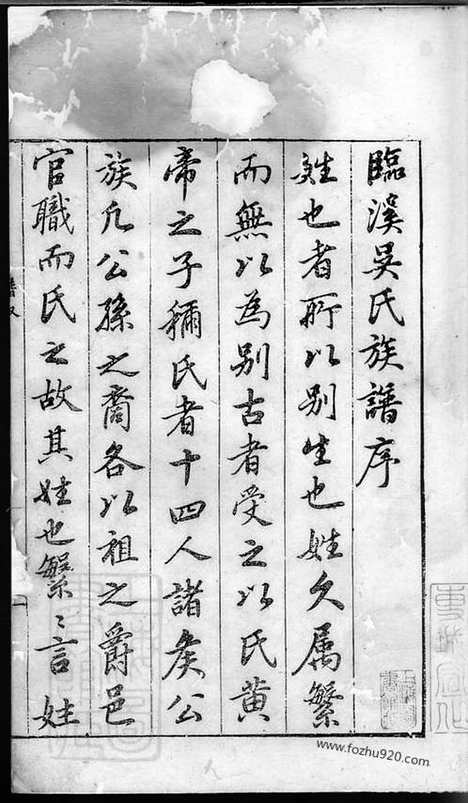 臨溪吳氏族譜序
姓也者所以别生也姓久属繁
而無以為别古者受之以氏黄
帝之子稱氏者十四人諸矦公
族凡公孫之裔各以祖之爵邑
官職而氏之故其姓也繁〻言姓
www.fozhu920.com